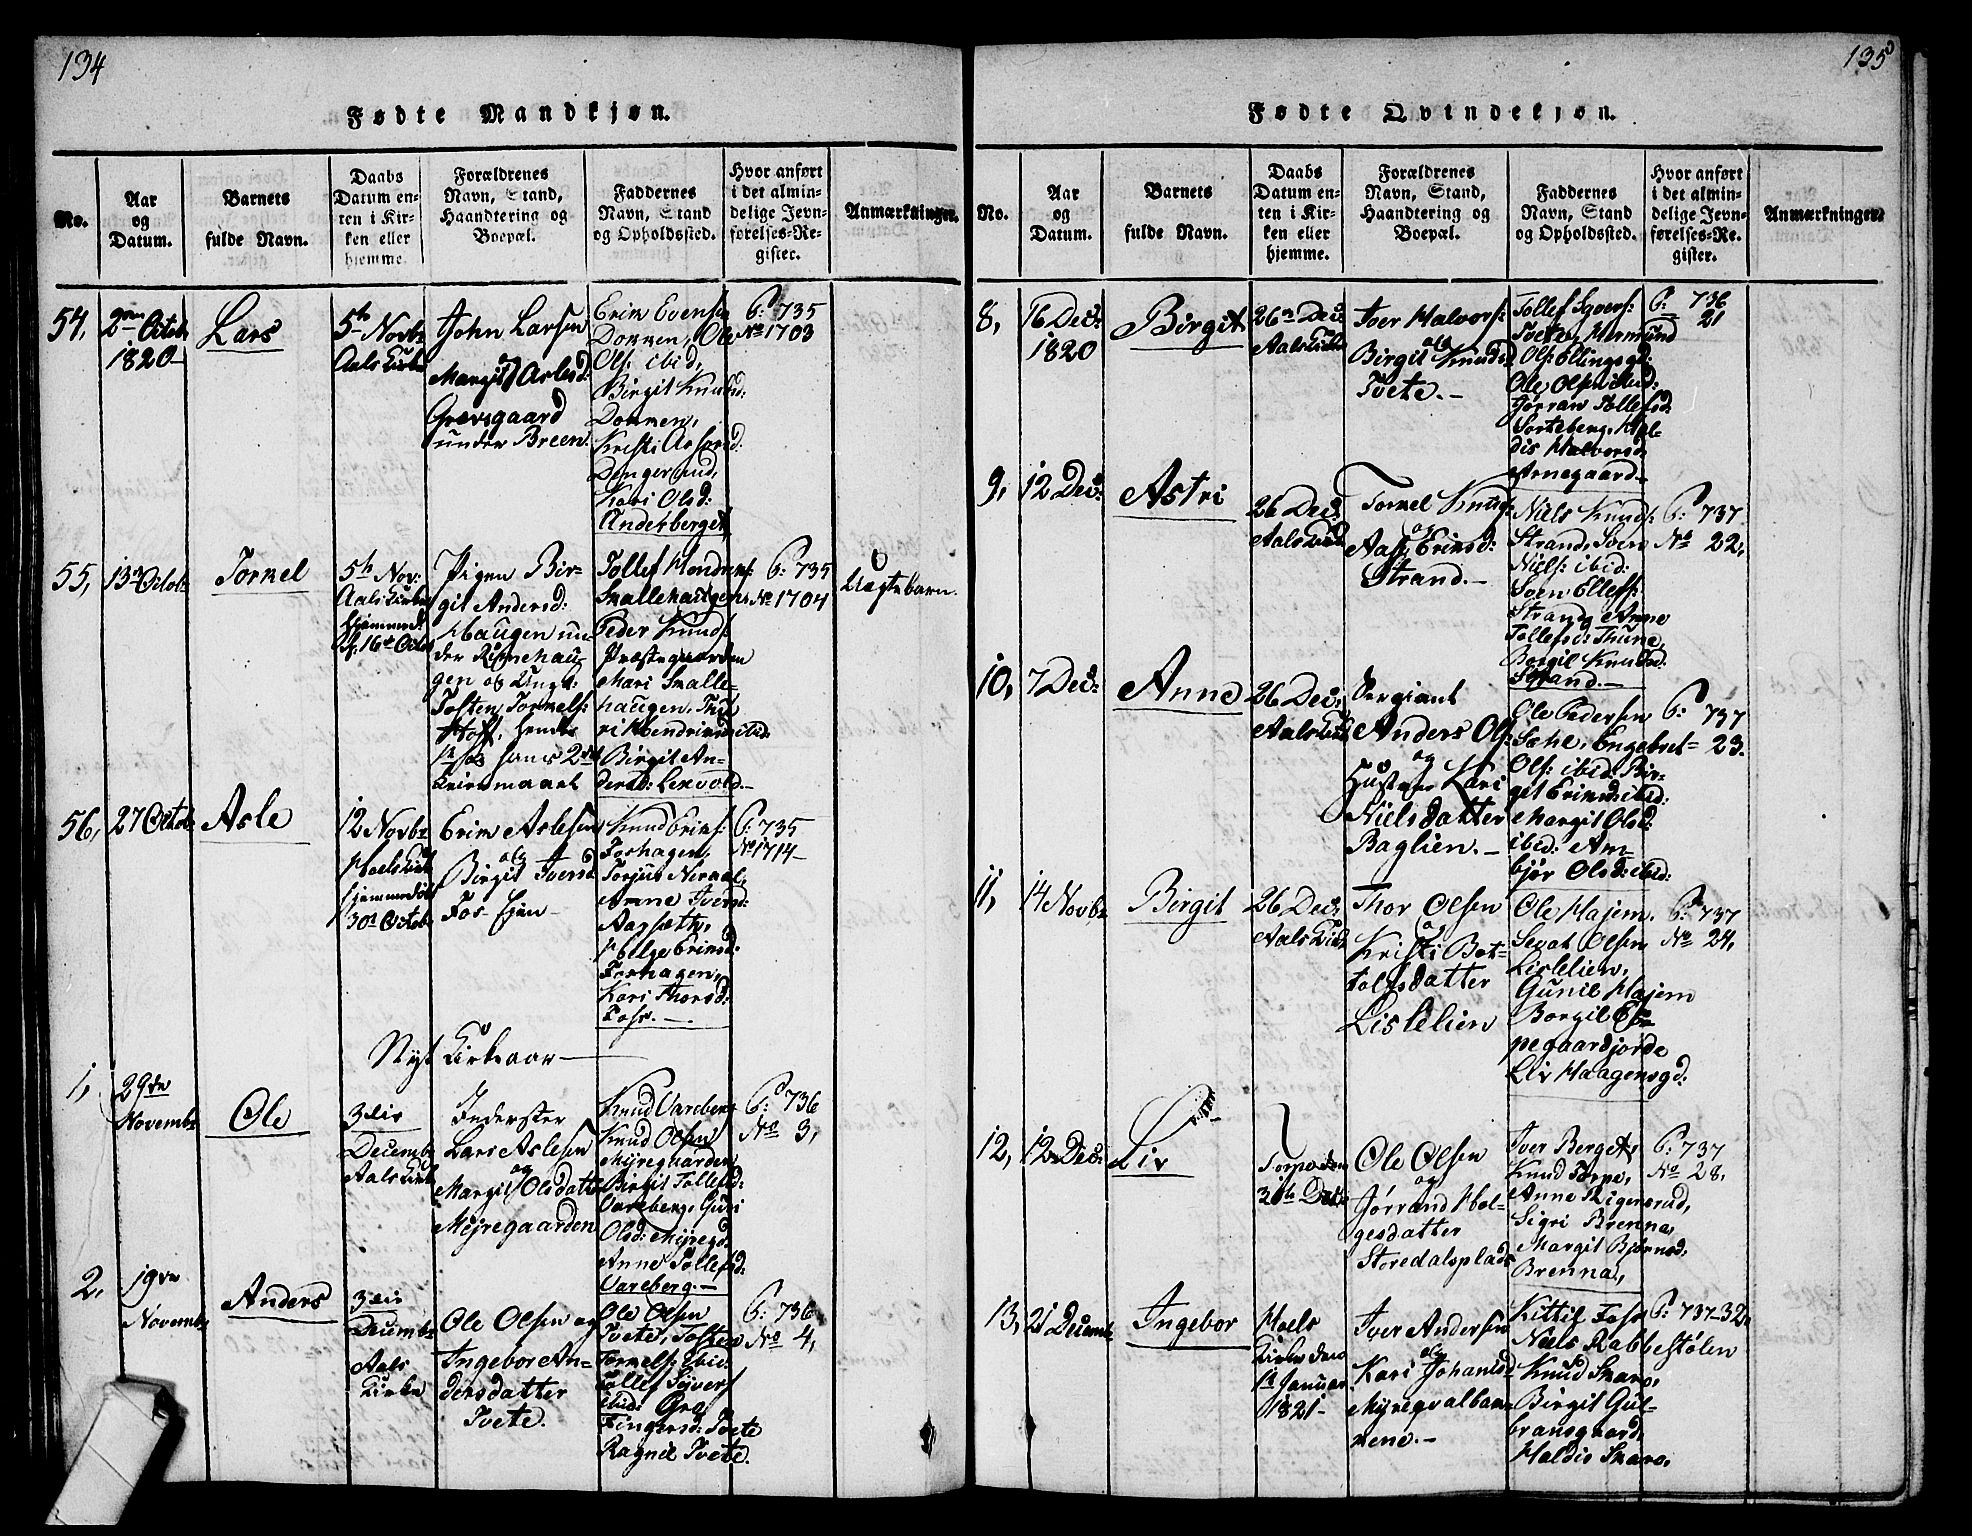 134
Fødte Mandkjøn.
No.
Aar
og
Datum.
Barnets
fulde Navn.
Daabs
Datum en-
ten i Kir-
ken eller
hjemme.
Forældrenes
Navn, Stand,
Haandtering og
Boepæl.
Faddernes
Navn, Stand
og Opholdssted.
Hvor anført
i det almin-
delige Jevn-
førelses-Re-
gister.
Anmærkninger.
54,
2den Octob
1820
Lars
5te Novbr
Aals Kirke
John Larsen
og
Margit Aslesd:
Grevsgaard
under Breen.
Erik Evens:
Dokken, Ole
Ols: ibid,
Birgit Knudsd:
Dokken,
Kristi
Dengerud,
Kari Olsd:
P: 735
No 1703
55,
13de Octob:
Torkel
5te Nov:
Aals Kirke
Hjemmed:
16de Octob
Pigen Bir-
git Andersd:
Haugen un-
der
gen og Ungk:
Tosten Torkels:
Hoff, hendes
1ste og hans 2det
Leiermaal
Tollef Hendriks:
Skallehaugen
Peder Knuds:
Præstegaarden
Mari Skalle-
haugen,
ri Hendriksd: ibid:
Birgit An-
dersd: Lexvold.
P: 735
No 1704
Uægtebarn.
56,
27 Octob:
Asle
12 Novbr
Hoels Kirke
hjemmedøbt
30te Octob
Erik Aslesen
og
Birgit Iversd
Fos-Ejen
Knud Eriks:
Foshagen,
Torjus Noraal,
Anne Iversd:
Aagsæth,
Helge Eriksd:
Foshagen,
Kari Thorsd:
Foss.
P: 735
No 1714
Nyt Kirkeaar
1,
29de
Novembr
Ole
3die
Decembr
Aals Kirke
Inderster
Lars Aslesen
og
Margit Olsdatter
Myregaarden
Knud Vareberg
Knud Olsen
Myregaarden
Birgit Tollefsd:
Vareberg, Guri
Olsd: Myregd.
Anne Tollefsd:
Vareberg.
P: 736
No 3,
2,
19de
Novembr
Anders
3die
Decembr
Aals
Kirke
Ole Olsen og
Ingebor An-
dersdatter
Tvete.
Ole Olsen
Tvete, Tosten
Torkels: ibid:
Tollef Syvers:
ibid: Gro
Fingersd: Tvete
Ragnil Tvete.
P: 736
No 4,
135
Fødte Qvindekjøn.
No.
Aar
og
Datum.
Barnets
fulde Navn.
Daabs
Datum en-
ten i Kir-
ken eller
hjemme.
Forældrenes
Navn, Stand,
Haandtering og
Boepæl.
Faddernes
Navn, Stand
og Opholdssted.
Hvor anført
i det almin-
delige Jevn-
førelses-Re-
gister.
Anmærkninger.
8,
16 Dec:
1820
Birgit
26de Dec:
Aals Kirke
Iver Halvors:
og
Birgit Knudsd
Tvete.
Tollef Syvers:
Tvete, Hermund
Ols: Elingsgd:
Ole Olsen ibid:
Jørran Tollefsd:
Sorteberg, Hal-
dis Halvorsd,
Arnegaard
P: 736
21
9,
12 Dec:
Astri
26 Dec:
Aals Kirke
Torkel Knuds:
og
Aase Eriksd:
Strand.
Niels Knuds:
Strand, Sven
Niels: ibid:
Sven Ellefs:
Strand, Anne
Tollefsd: Thune,
Borgil Knudsd:
Strand.
P: 737
No 22,
10,
7 Dec:
Anne
26 Dec:
Aals Kirke
Sergiant
Anders Ols:
og
Hustrue Kari
Nielsdatter
Baglien.
Ole Pedersen
Sæhe, Engebret
Ols: ibid: Bir-
git Eriksd: ibid:
Margit Olsd:
ibid: Am-
bjør Olsd: ibid:
P: 737
23.
11,
14 Novbr
Birgit
26 Dec:
Aals Kirke
Thor Olsen
og
Kristi Bot-
tolfsdatter
Lislelien
Ole Hajem,
Sevat Olsen
Lislelien,
Gunil Hajem
Borgil Es-
pegaardjorde
Liv Haagensgd:
P: 737
No 24,
12,
12 Dec:
Liv
Torpo den
Ole Olsen
og
Jørrand Hel-
gesdatter
Storedalsplads
Iver Berget,
Knud Torpe,
Anne Rigensrud,
Sigri Brenna,
Margit Bjørnsd,
Brenna,
P: 737
No 28,
13,
21 Decemb
Ingebor
Hoels
Kirke den
1te Januar
1821
Iver Andersen
og
Kari Johansd
Myregvalbak-
kene.
Kittil Foss
Niels Rabbestølen
Knud Skaro,
Birgit Gul-
bransgaard,
Haldis Skaro,
P: 737-32,